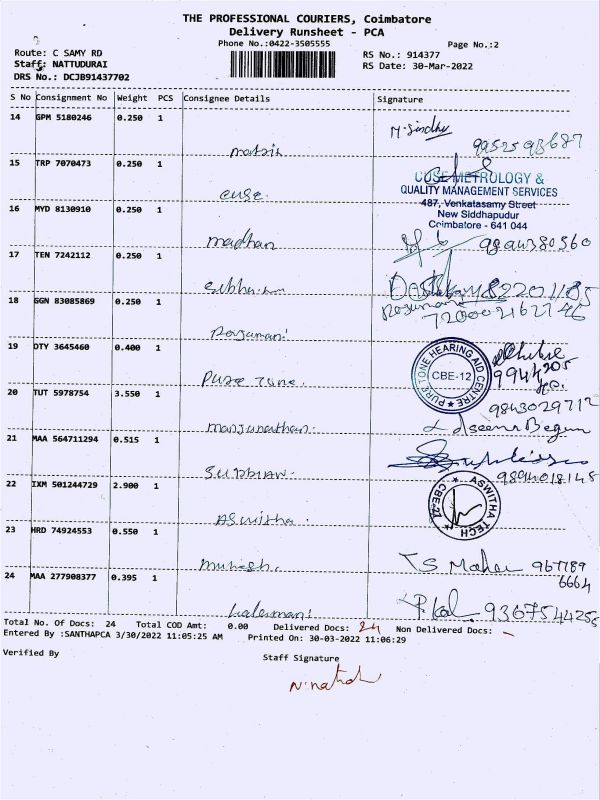 THE PROFESSIONAL COURIERS, Coimbatore
Delivery Runsheet - PCA
Phone No.:0422-3505555
Page No.:2
Route: C SAMY RD
RS No.: 914377
Staff: NATTUDURAI
RS Date: 30-Mar-2022
DRS No.: DCJB91437702
S No Consignment No Weight PCS Consignee Details Signature
14 GPM 5180246 0.250 1
M.Sindhu
15 TRP 7070473 0.250 1
cuse.
CUSE METROLOGY &
QUALITY MANAGEMENT SERVICES
487, Venkatasamy Street
New Siddhapudur
Coimbatore - 641 044
16 MYD 8130910 0.250 1
madhan
17 TEN 7242112 0.250 1
18 GGN 83085869 0.250 1
Rajamani
720002162746
19 DTY 3645460 0.400 1
Pure Tone.
PURE TONE HEARING AID CENTRE
CBE-12
20 TUT 5978754 3.550 1
Manjunathan.
9843029712
21 MAA 564711294 0.515 1
9894018148
22 IXM 501244729 2.900 1
Aswitha.
ASWITHA TECH
CBE-21
23 HRD 74924553 0.550 1
Mukesh.
967789
6664
24 MAA 277908377 0.395 1
9367544256
Total No. Of Docs: 24 Total COD Amt: 0.00 Delivered Docs: 24 Non Delivered Docs: -
Entered By :SANTHAPCA 3/30/2022 11:05:25 AM Printed On: 30-03-2022 11:06:29
Verified By
Staff Signature